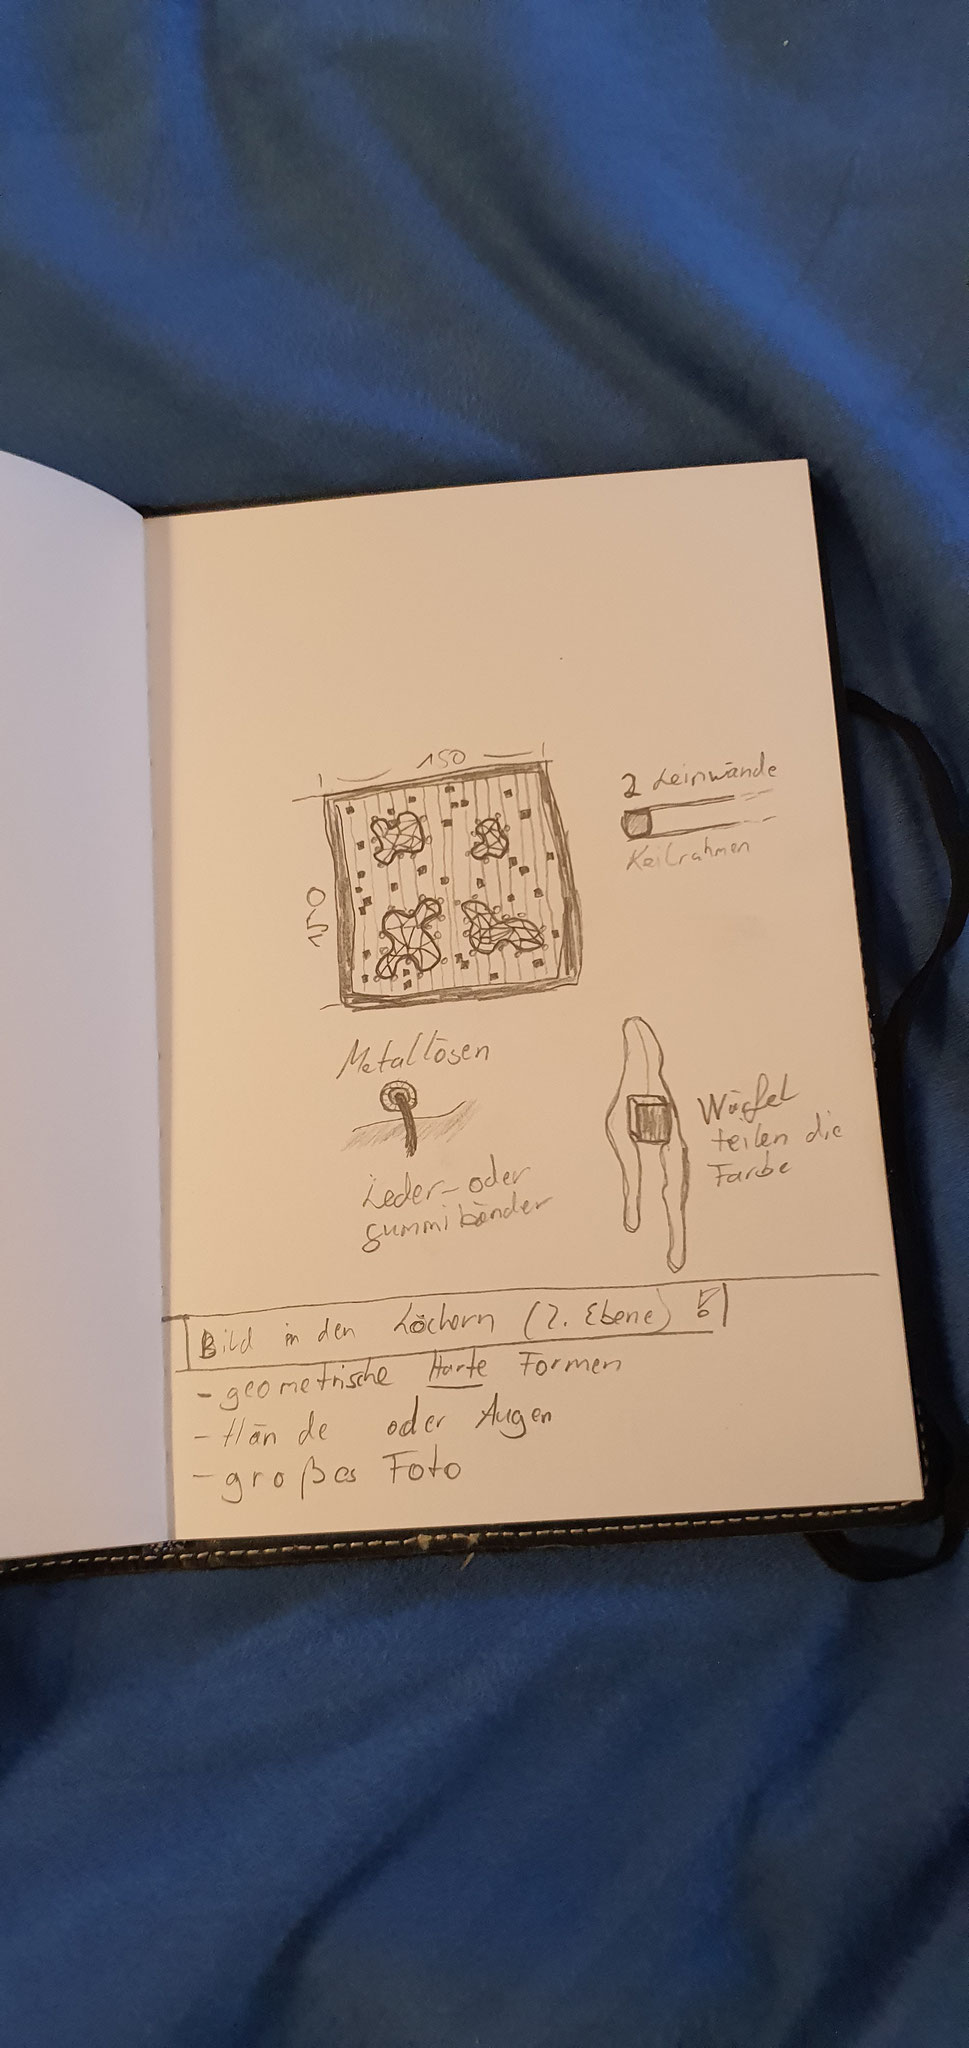 150
2 Leinwände
Keilrahmen
150
Metallösen
Leder- oder
gummibänder
Würfel
teilen die
Farbe
Bild in den Löchern (2. Ebene)
- geometrische Harte Formen
- Hände oder Augen
- großes Foto